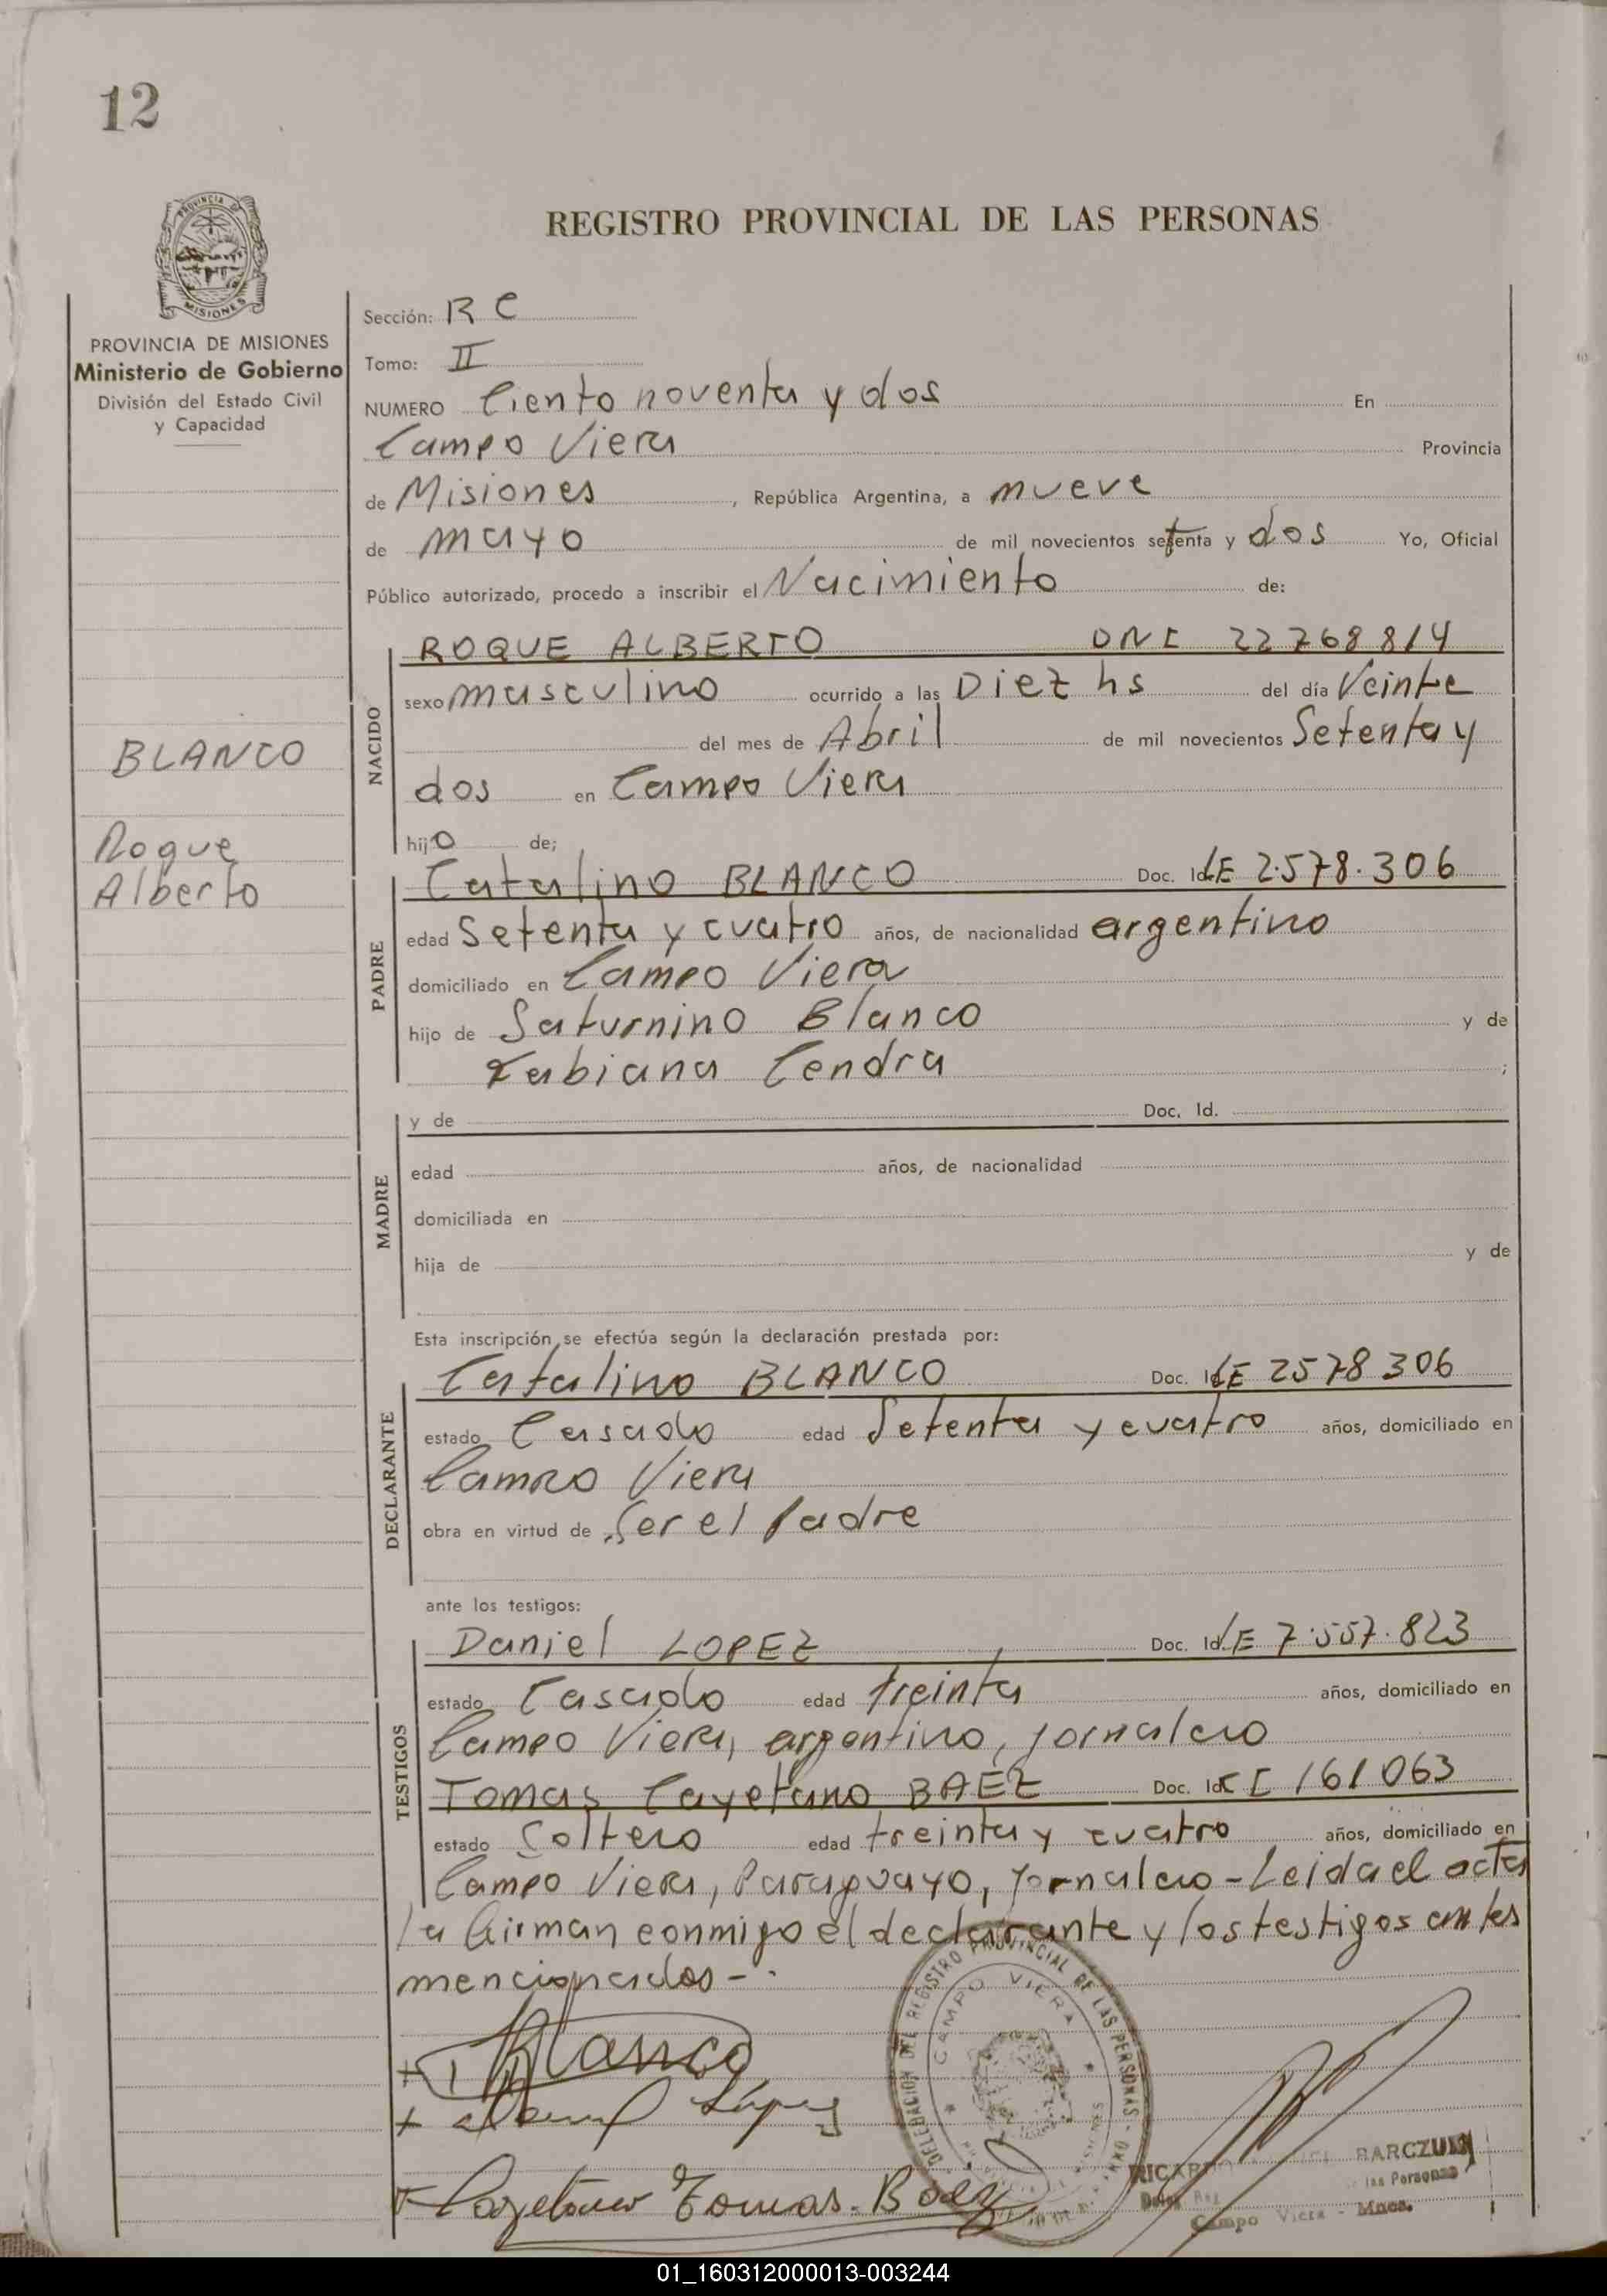 12
PROVINCIA DE
MISIONES
REGISTRO PROVINCIAL DE LAS PERSONAS
PROVINCIA DE MISIONES
Ministerio de Gobierno
División del Estado Civil
y Capacidad
BLANCO
Roque
Alberto
Sección: R C
Tomo: II
NUMERO Ciento noventa y dos En
Campo Viera Provincia
de Misiones, República Argentina, a nueve
de mayo de mil novecientos setenta y dos Yo, Oficial
Público autorizado, procedo a inscribir el Nacimiento de:
NACIDO
ROQUE ALBERTO DNI 22768814
sexo masculino ocurrido a las Diez hs del día Veinte
del mes de Abril de mil novecientos Setenta y
dos en Campo Viera
hijo de;
PADRE
Catalino BLANCO Doc. Id. LE 2.578.306
edad Setenta y cuatro años, de nacionalidad argentino
domiciliado en Campo Viera
hijo de Saturnino Blanco y de
Fabiana Cendra ;
MADRE
y de Doc. Id.
edad años, de nacionalidad
domiciliada en
hija de y de
Esta inscripción se efectúa según la declaración prestada por:
DECLARANTE
Catalino BLANCO Doc. Id. LE 2578306
estado Casado edad Setenta y cuatro años, domiciliado en
Campo Viera
obra en virtud de Ser el Padre
ante los testigos:
TESTIGOS
Daniel LOPEZ Doc. Id. LE 7.557.823
estado Casado edad treinta años, domiciliado en
Campo Viera, argentino, jornalero
Tomas Cayetano BAEZ Doc. Id. CI 161063
estado Soltero edad treinta y cuatro años, domiciliado en
Campo Viera, Paraguayo, Jornalero - Leida el acta
la firman conmigo el declarante y los testigos antes
mencionados -.
Blanco
Daniel López
Cayetano Tomas. Baez
DELEGACION DEL REGISTRO PROVINCIAL DE LAS PERSONAS
CAMPO VIERA
RICARDO BARCZUK
las Personas
Campo Viera - Mnes.
01_160312000013-003244